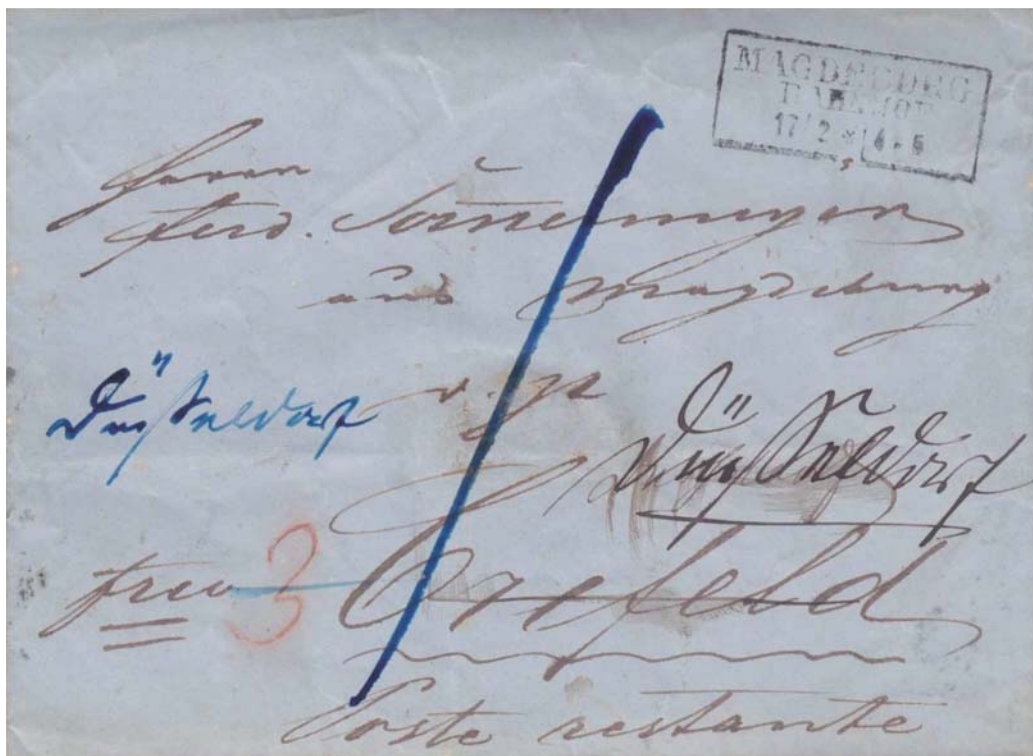 MAGDEBURG
BAHNHOF
17/2 * 4-5
Herrn
Ferd.
aus Magdeburg
Düsseldorf
Düsseldorf
frco 3 Crefeld
Poste restante